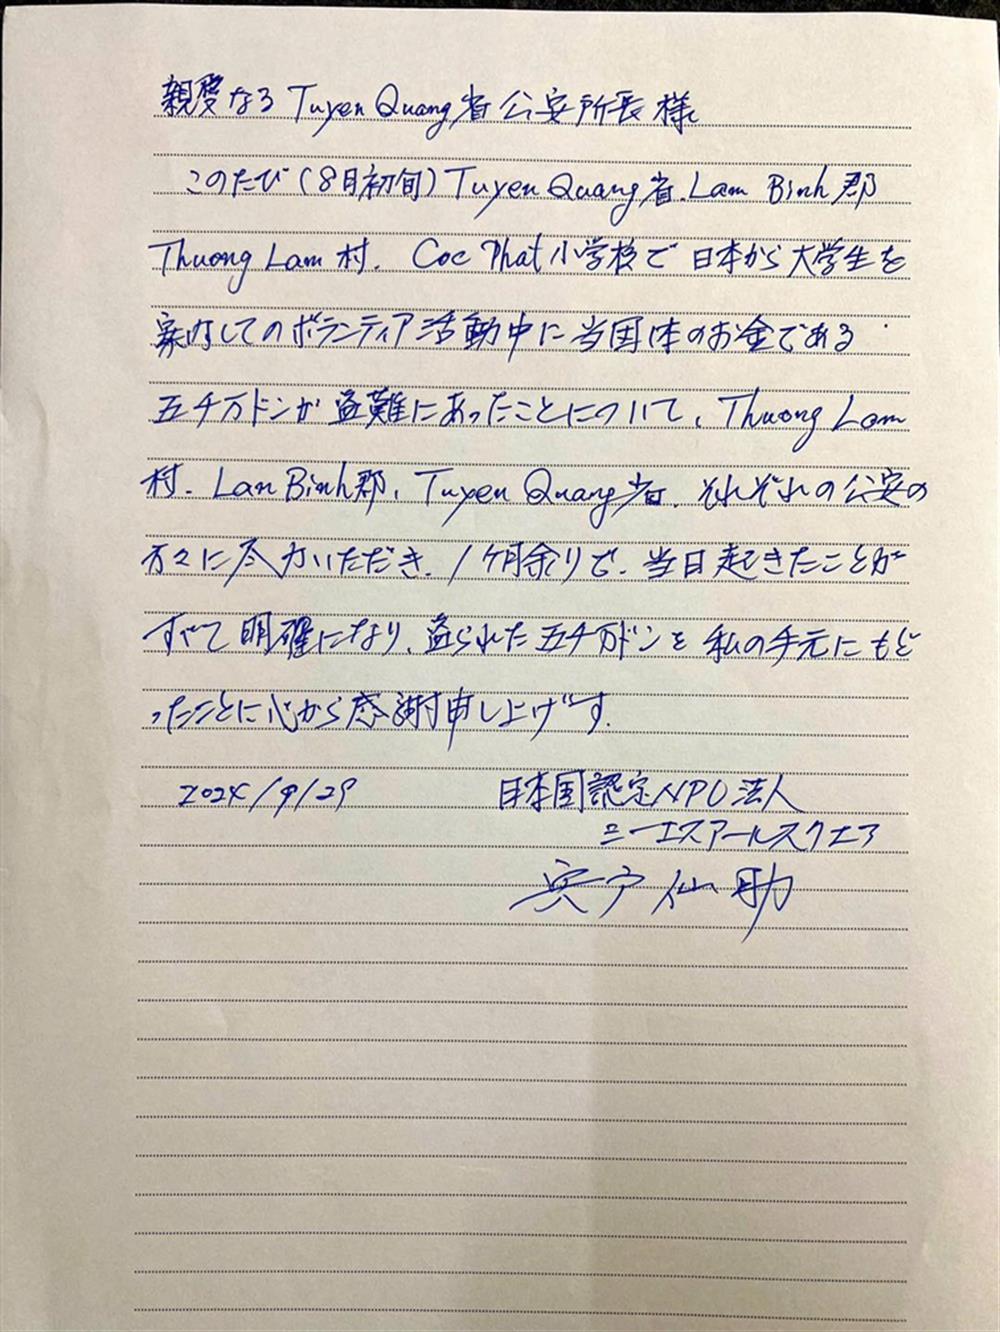 親愛なるTuyen Quang省公安所長様
このたび(8月初旬)Tuyen Quang省.Lam Binh郡
Thuong Lam村.Coc Phat小学校で日本から大学生を
案内してのボランティア活動中に当団体のお金である
五千万ドンが盗難にあったことについて、Thuong Lam
村.Lan Binh郡、Tuyen Quang省.それぞれの公安の
方々に尽力いただき.1ヶ月余りで.当日起きたことが
すべて明確になり、盗られた五千万ドンを私の手元にもど
ったことに心から感謝申し上げます.
2024/9/29 日本国認定NPO法人
シーエスアールスクエア
宍戸仙助